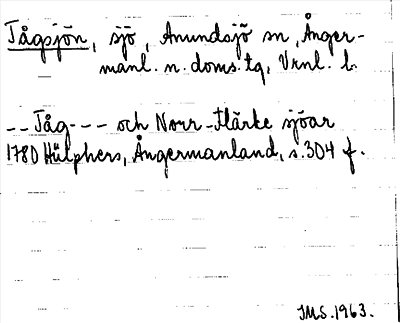 Tågsjön, sjö, Anundsjö sn, Ånger-
manl. n. doms.tg, Vrnl. l.
-- Tåg --- och Norr-Flärke sjöar
1780 Hülphers, Ångermanland, s. 304 f.
IMS. 1963.